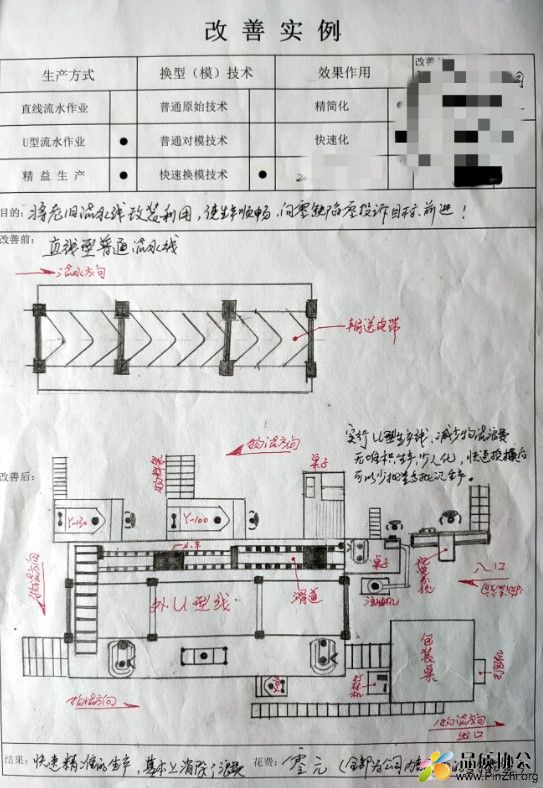 改善实例
生产方式 换型（模）技术 效果作用
直线流水作业 普通原始技术 精简化
U型流水作业 ● 普通对模技术 快速化
精益生产 ● 快速换模技术 ●
目的：将老旧流水线改装利用，使生产顺畅，向零缺陷零投诉目标前进！
改善前：直线型普通流水线
流水方向
输送皮带
物流方向
实行U型生产线，减少物流浪费
无堆积生产，少人化，快速换模后
可以少批量多批次生产。
改善后：
桌子
Y-130
Y-100
小车
物流方向
外U型线
滑道
桌子
入口
包装桌
物流方向
物流方向
出口
结果：快速精准的生产，基本上消除了浪费
花费：零元（全部为公司内
品质协公
www.PinZhi.org